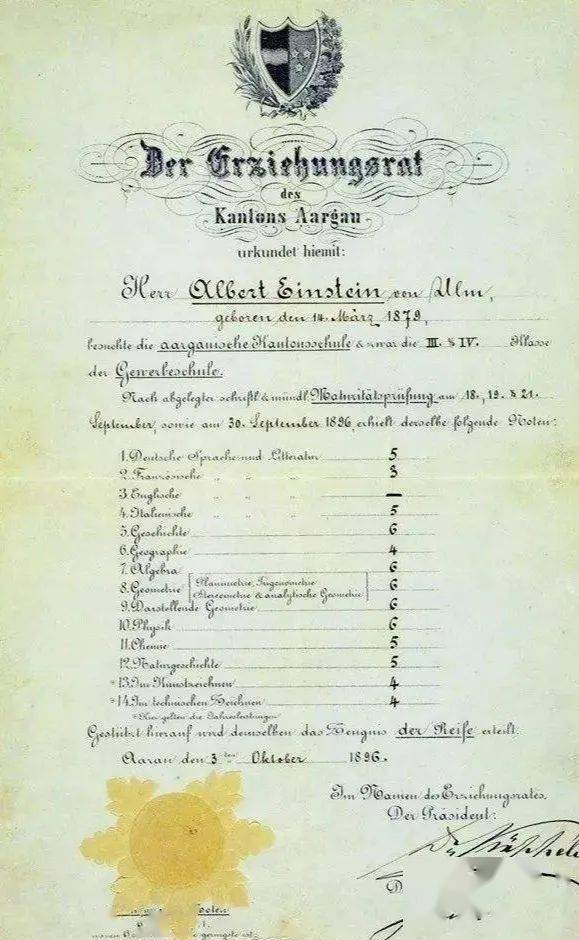 Der Erziehungsrat
des
Kantons Aargau
urkundet hiemit:
Herr Albert Einstein von Ulm,
geboren den 14. März 1879,
besuchte die aargauische Kantonsschule & zwar die III. & IV. Klasse
der Gewerbeschule.
Nach abgelegter schriftl. & mündl. Maturitätsprüfung am 18., 19. & 21.
September, sowie am 30. September 1896, erhielt derselbe folgende Noten:
1. Deutsche Sprache und Litteratur 5
2. Französische " " " 3
3. Englische " " " —
4. Italienische " " " 5
5. Geschichte 6
6. Geographie 4
7. Algebra 6
8. Geometrie [Planimetrie, Trigonometrie 6
Stereometrie & analytische Geometrie]
9. Darstellende Geometrie 6
10. Physik 6
11. Chemie 5
12. Naturgeschichte 5
*13. Im Kunstzeichnen 4
*14. Im technischen Zeichnen 4
*Hier gelten die Jahresleistungen
Gestützt hierauf wird demselben das Zeugnis der Reife erteilt.
Aarau den 3ten Oktober 1896.
Im Namen des Erziehungsrates,
Der Präsident:
D
Noten